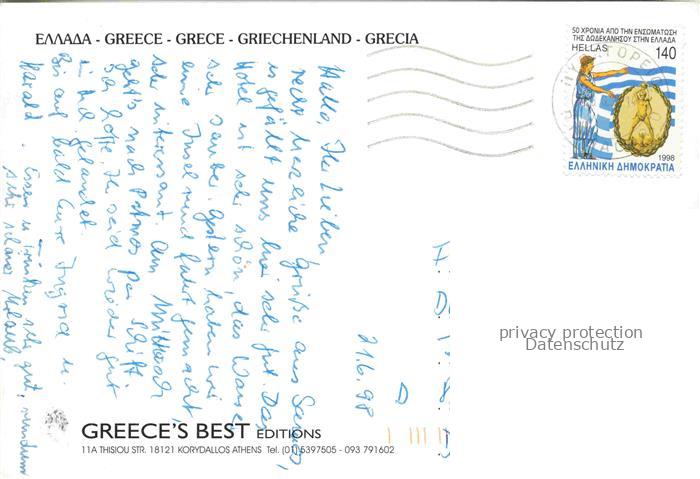 ΕΛΛΑΔΑ - GREECE - GRECE - GRIECHENLAND - GRECIA
50 ΧΡΟΝΙΑ ΑΠΟ ΤΗΝ ΕΝΣΩΜΑΤΩΣΗ
ΤΗΣ ΔΩΔΕΚΑΝΗΣΟΥ ΣΤΗΝ ΕΛΛΑΔΑ
HELLAS 140
1998
ΕΛΛΗΝΙΚΗ ΔΗΜΟΚΡΑΤΙΑ
Hallo, Ihr Lieben
recht herzliche Grüße aus Samos,
es gefällt uns hier sehr gut. Das
Hotel ist sehr schön, das Wasser
sehr sauber. Gestern haben wir
eine Inselrundfahrt gemacht,
sehr interessant. Am Mittwoch
geht's nach Patmos per Schiff.
Ich hoffe, Ihr seid wieder gut
gelandet.
Bis auf bald Eure Ingrid u.
Harald. Essen u. Trinken sehr gut, rundum
sehr schöner Urlaub,
21.6.98
D
privacy protection
Datenschutz
GREECE'S BEST EDITIONS
11A THISIOU STR. 18121 KORYDALLOS ATHENS Tel. (01) 5397505 - 093 791602